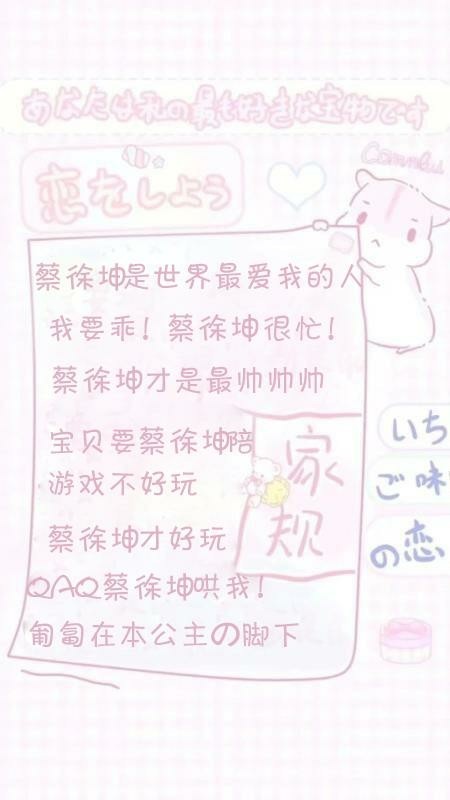 あなたは私の最も好きな宝物です
恋をしよう
蔡徐坤是世界最爱我的人
我要乖！蔡徐坤很忙！
蔡徐坤才是最帅帅帅
宝贝要蔡徐坤陪
游戏不好玩
蔡徐坤才好玩
QAQ蔡徐坤哄我！
匍匐在本公主の脚下
家规
いち
ご味
の恋